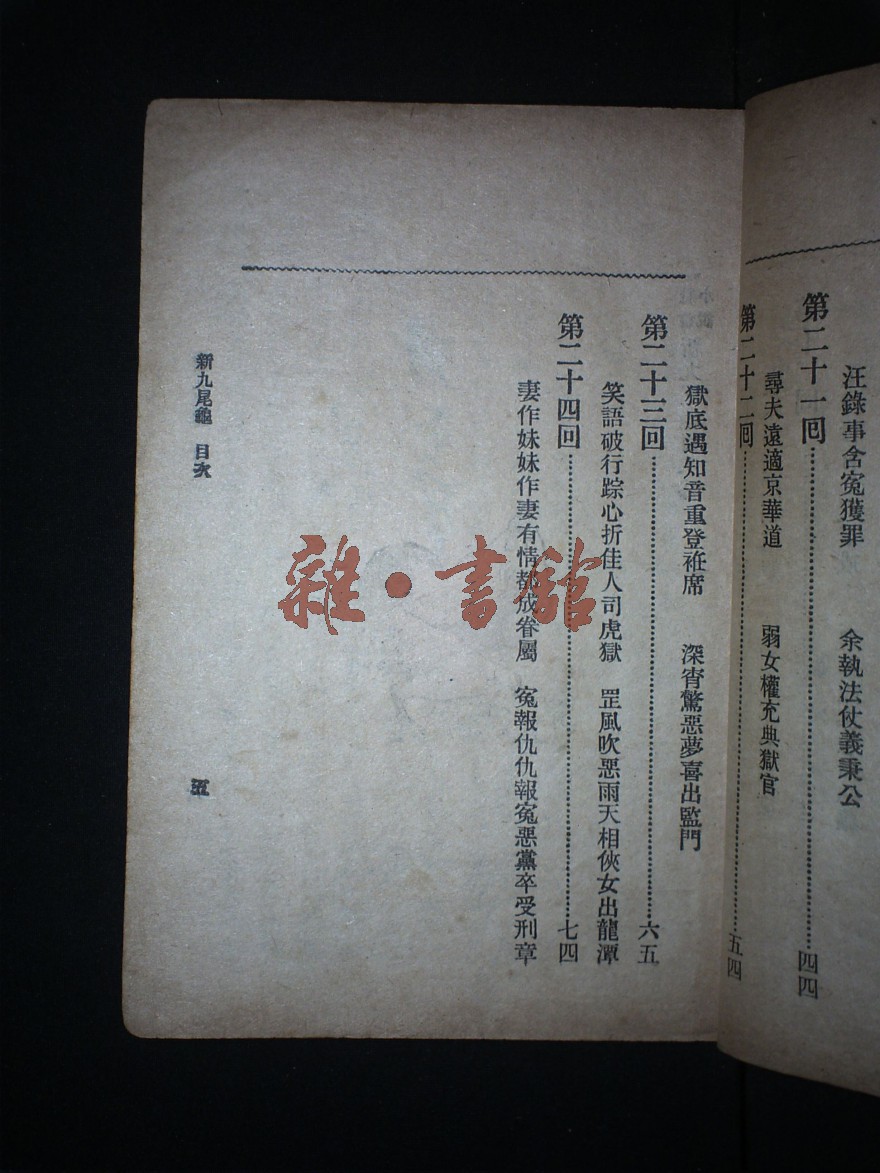 汪錄事含寃獲罪　余執法仗義秉公
第二十一囘…………四四
尋夫遠適京華道　弱女權充典獄官
第二十二囘…………五四
獄底遇知音重登袵席　深宵驚惡夢喜出監門
第二十三囘…………六五
笑語破行踪心折佳人司虎獄　罡風吹惡雨天相俠女出龍潭
第二十四囘…………七四
妻作妹妹作妻有情都成眷屬　寃報仇仇報寃惡黨卒受刑章
新九尾龜　目次
五
雜·書館